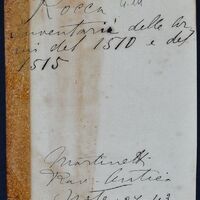 Rocca
inventari delle ar
mi del 1510 e del
1515
Martinetti
Rav. Antica